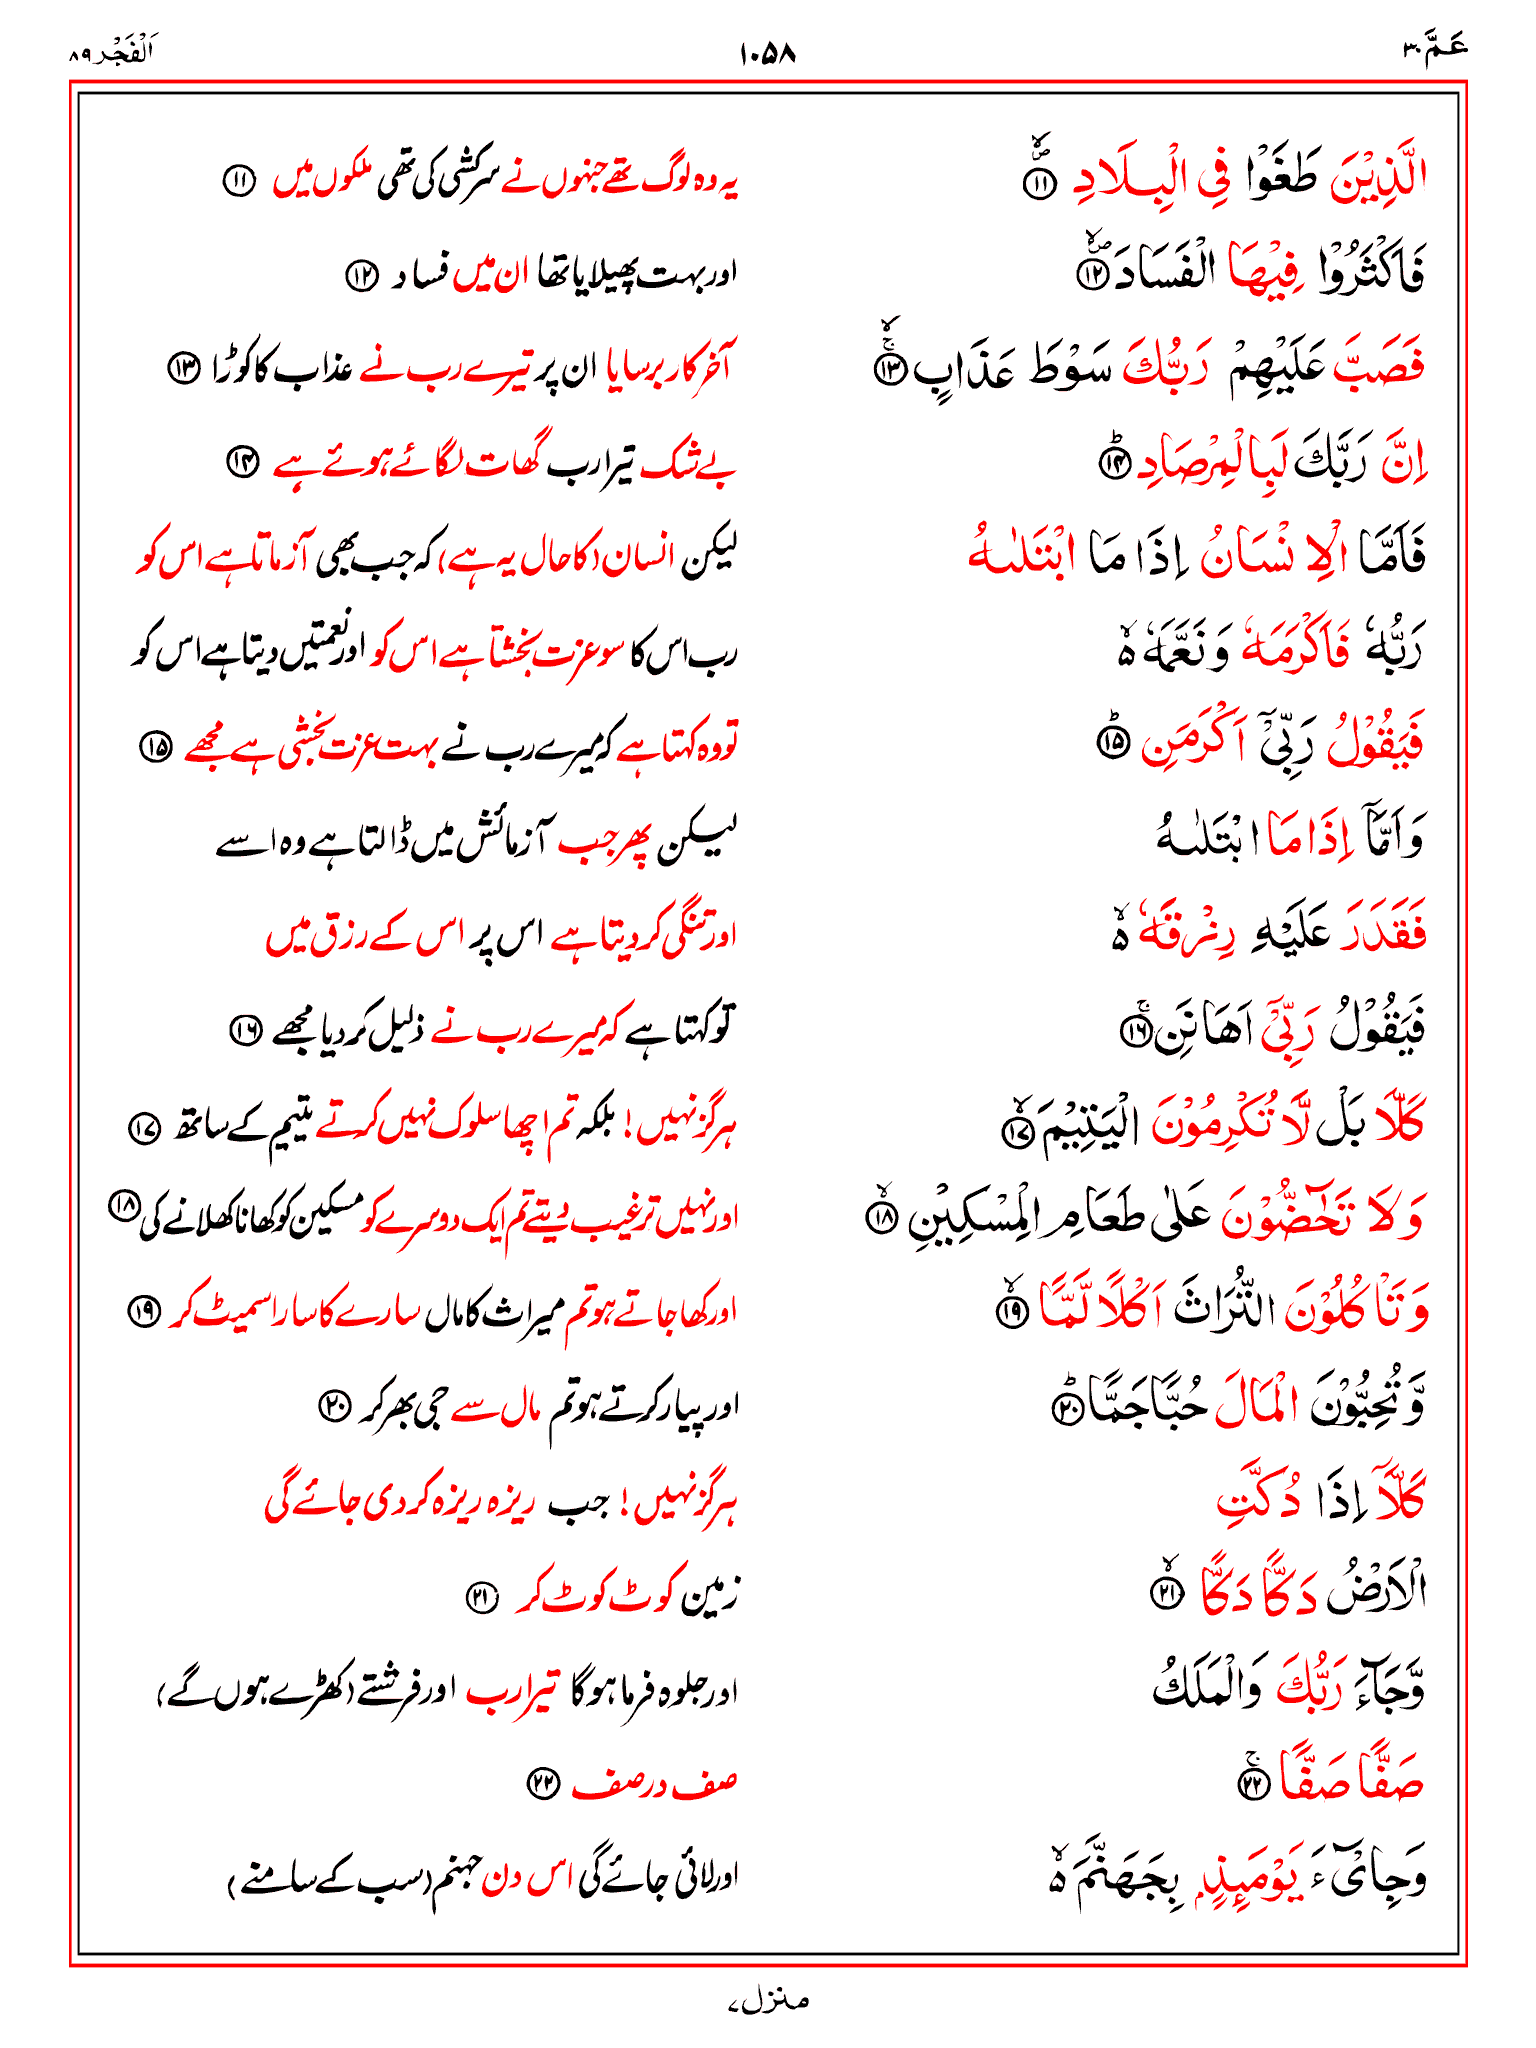 عَمَّ ۳۰
۱۰۵۸
اَلْفَجْر ۸۹
الَّذِيْنَ طَغَوْا فِي الْبِلَادِ ۪ۙ ۱۱
یہ وہ لوگ تھے جنہوں نے سرکشی کی تھی ملکوں میں ۱۱
فَاَكْثَرُوْا فِيْهَا الْفَسَادَ ۪ۙ ۱۲
اور بہت پھیلایا تھا ان میں فساد ۱۲
فَصَبَّ عَلَيْهِمْ رَبُّكَ سَوْطَ عَذَابٍ ۚۙ ۱۳
آخر کار برسایا ان پر تیرے رب نے عذاب کا کوڑا ۱۳
اِنَّ رَبَّكَ لَبِالْمِرْصَادِ ؕ ۱۴
بے شک تیرا رب گھات لگائے ہوئے ہے ۱۴
فَاَمَّا الْاِنْسَانُ اِذَا مَا ابْتَلٰىهُ
لیکن انسان (کا حال یہ ہے) کہ جب بھی آزماتا ہے اس کو
رَبُّهٗ فَاَكْرَمَهٗ وَنَعَّمَهٗ ۙ۵
رب اس کا سو عزت بخشتا ہے اس کو اور نعمتیں دیتا ہے اس کو
فَيَقُوْلُ رَبِّيْۤ اَكْرَمَنِ ؕ ۱۵
تو وہ کہتا ہے کہ میرے رب نے بہت عزت بخشی ہے مجھے ۱۵
وَاَمَّاۤ اِذَا مَا ابْتَلٰىهُ
لیکن پھر جب آزمائش میں ڈالتا ہے وہ اسے
فَقَدَرَ عَلَيْهِ رِزْقَهٗ ۙ۵
اور تنگی کر دیتا ہے اس پر اس کے رزق میں
فَيَقُوْلُ رَبِّيْۤ اَهَانَنِ ۚ ۱۶
تو کہتا ہے کہ میرے رب نے ذلیل کر دیا مجھے ۱۶
كَلَّا بَلْ لَّا تُكْرِمُوْنَ الْيَتِيْمَ ۙ ۱۷
ہرگز نہیں! بلکہ تم اچھا سلوک نہیں کرتے یتیم کے ساتھ ۱۷
وَلَا تَحٰٓضُّوْنَ عَلٰى طَعَامِ الْمِسْكِيْنِ ۙ ۱۸
اور نہیں ترغیب دیتے تم ایک دوسرے کو مسکین کو کھانا کھلانے کی ۱۸
وَتَاْكُلُوْنَ التُّرَاثَ اَكْلًا لَّمًّا ۙ ۱۹
اور کھا جاتے ہو تم میراث کا مال سارے کا سارا سمیٹ کر ۱۹
وَّتُحِبُّوْنَ الْمَالَ حُبًّا جَمًّا ؕ ۲۰
اور پیار کرتے ہو تم مال سے جی بھر کر ۲۰
كَلَّاۤ اِذَا دُكَّتِ
ہرگز نہیں! جب ریزہ ریزہ کر دی جائے گی
الْاَرْضُ دَكًّا دَكًّا ۙ ۲۱
زمین کوٹ کوٹ کر ۲۱
وَّجَآءَ رَبُّكَ وَالْمَلَكُ
اور جلوہ فرما ہوگا تیرا رب اور فرشتے (کھڑے ہوں گے)
صَفًّا صَفًّا ۚ ۲۲
صف در صف ۲۲
وَجِايْٓءَ يَوْمَئِذٍۭ بِجَهَنَّمَ ۙ۵
اور لائی جائے گی اس دن جہنم (سب کے سامنے)
منزل ۷